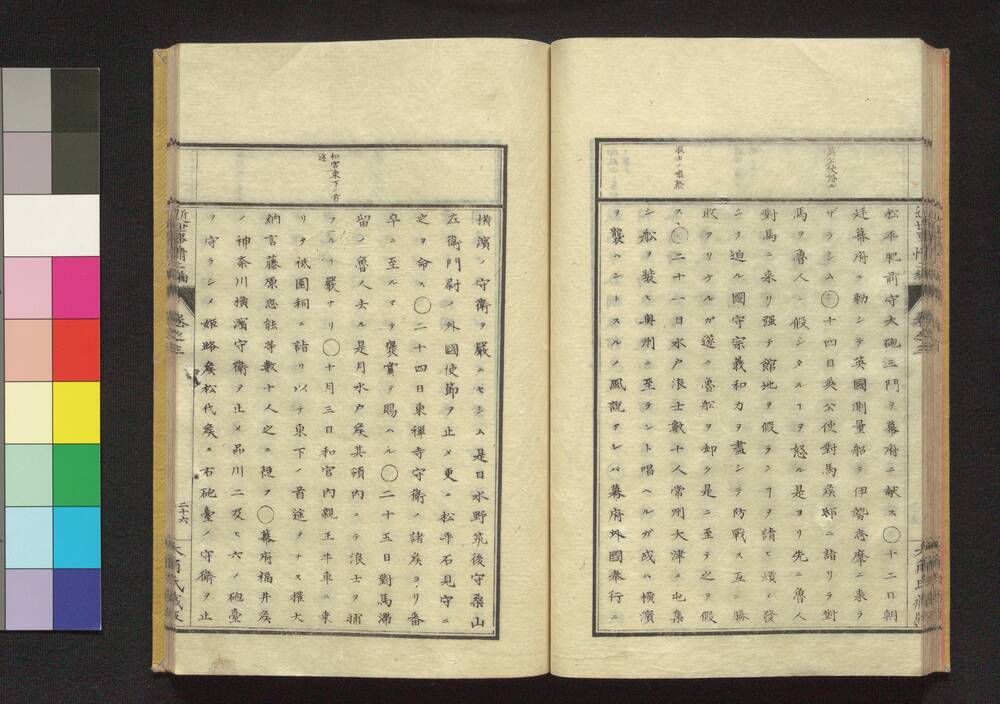 英公使怒ル
浪士ノ嘯聚
松平肥前守大砲三門ヲ幕府ニ献ス〇十二日朝
廷幕府ニ勅シテ英國測量船ヲ伊勢志摩ニ来ラ
ザラシム〇十四日英公使對馬矦邸ニ詣リラ對
馬ヲ魯人ニ假シタルヿヲ怒ル是ヨリ先ニ魯人
對馬ニ来リ强テ館地ヲ假ランヿヲ請ヒ煩ニ發
シテ迫ル國守宗義和力ヲ盡シテ防戦ス互ニ勝
敗アリケルガ遂ニ魯船ヲ却ク是ニ至テ之ヲ假
ス〇二十一日水戸浪士數十人常州大津ニ屯集
シ舩ヲ装ヒ奥州ニ至ラント唱ヘルガ或ハ横濱
ヲ襲ハントスルノ風説アレバ幕府外國奉行ニ
和宮東下ノ首
途
横濱ノ守衛ヲ嚴ニセシム是日水野筑後守桑山
左衛門尉ノ外國使節ヲ止メ更ニ松平石見守ニ
之ヲ命ス〇二十四日東禅寺守衛ノ諸矦ヨリ番
卒ニ至ルマテ褒賞ヲ賜ハル〇二十五日對馬滞
留ノ魯人去ル是月水戸矦其領内ニテ浪士ヲ捕
フルヿ嚴ナリ〇十月三日和宮内親王牛車ニ乗
リテ祇園祠ニ詣リ以テ東下ノ首途ヲナス權大
納言藤原忠能等數十人之ニ從フ〇幕府福井矦
ノ神奈川横濱守衛ヲ止メ品川二及ヒ六ノ砲臺
ヲ守ラシメ姫路矦松代矦ニ右砲臺ノ守衛ヲ止
近世事情二編
卷之三
二十六